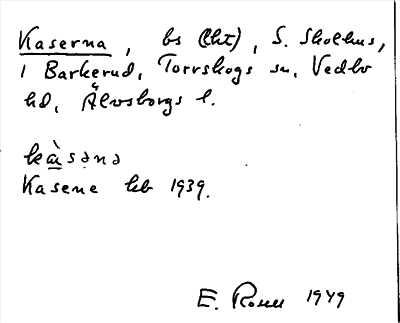 Kaserna, bs (ht), S. Skolhus,
i Barkerud, Torrskogs sn, Vedbo
hd, Älvsborgs l.
kàsənə
Kasene kb 1939.
E. Rosell 1949